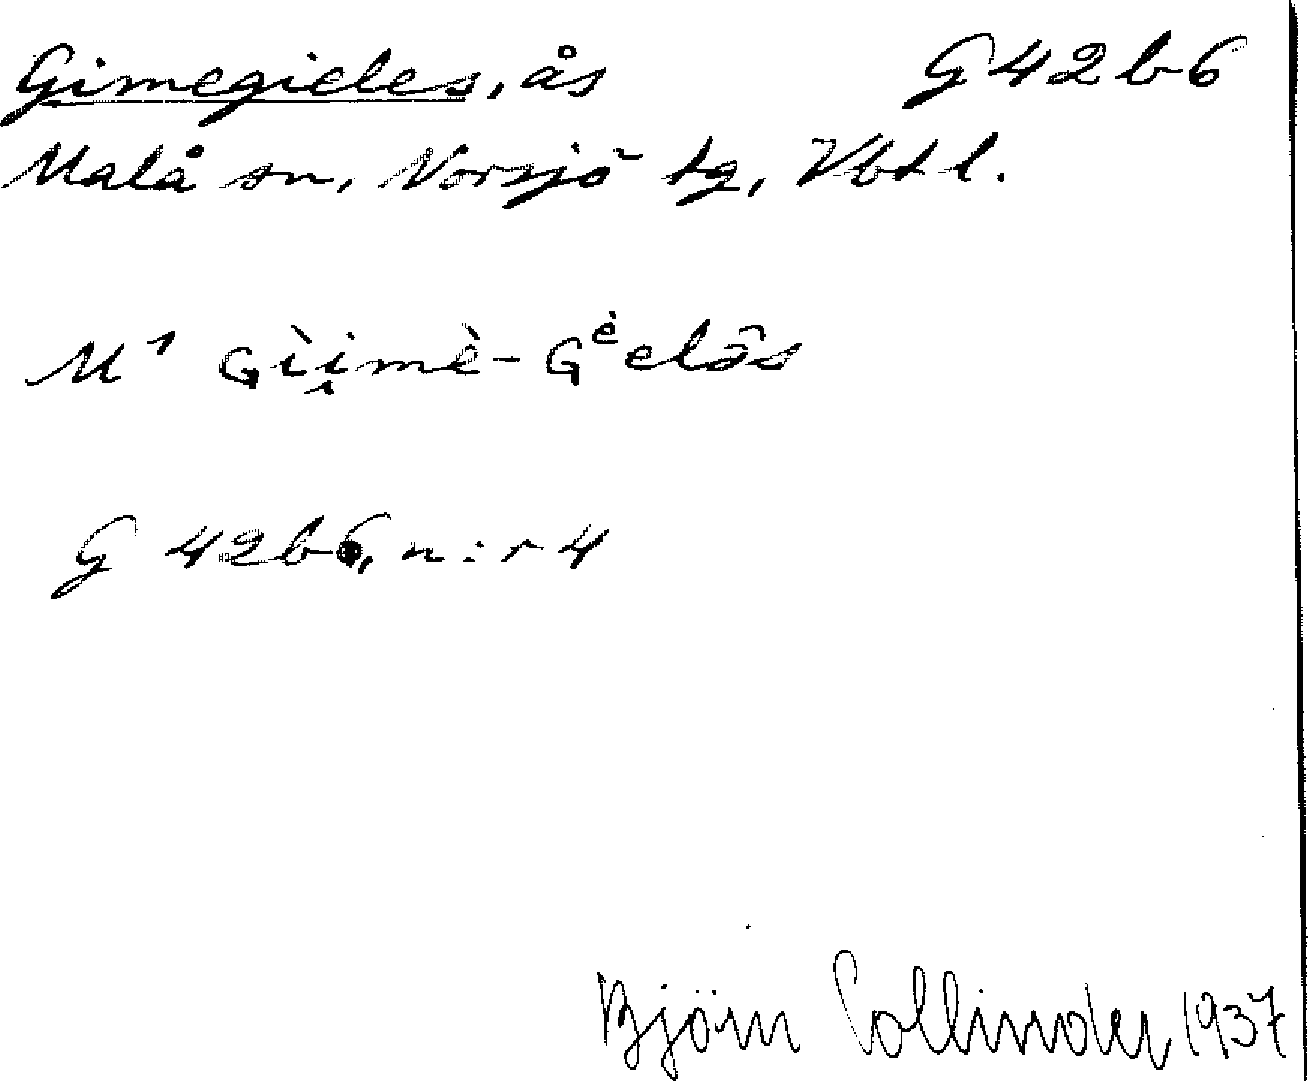 Gimegieles, ås G42b6
Malå sn, Norsjö tg, Vbtl.
M¹ Gìi̭mè-Gᵉ̀elôs
G 42b6, n:r 4
Björn Collinder 1937